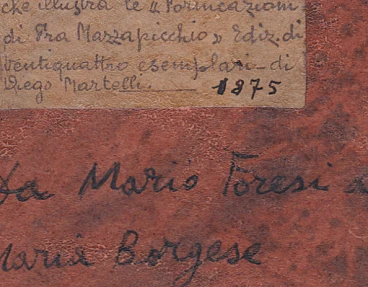 che illustra le « Fornicazioni
di Fra Mazzapicchio » Ediz. di
ventiquattro esemplari - di
Diego Martelli. 1875
Da Mario Foresi a
Maria Borgese